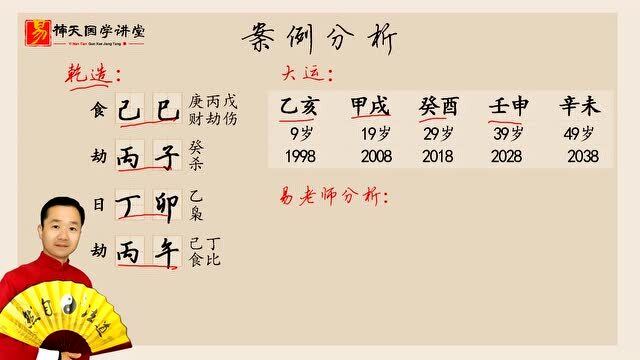 易 楠天国学讲堂
Yi Nan Tian Guo Xue Jiang Tang
案例分析
乾造：
食 己 巳 庚丙戊
财劫伤
劫 丙 子 癸
杀
日 丁 卯 乙
枭
劫 丙 午 己丁
食比
大运：
乙亥 甲戌 癸酉 壬申 辛未
9岁 19岁 29岁 39岁 49岁
1998 2008 2018 2028 2038
易老师分析：
然自法道